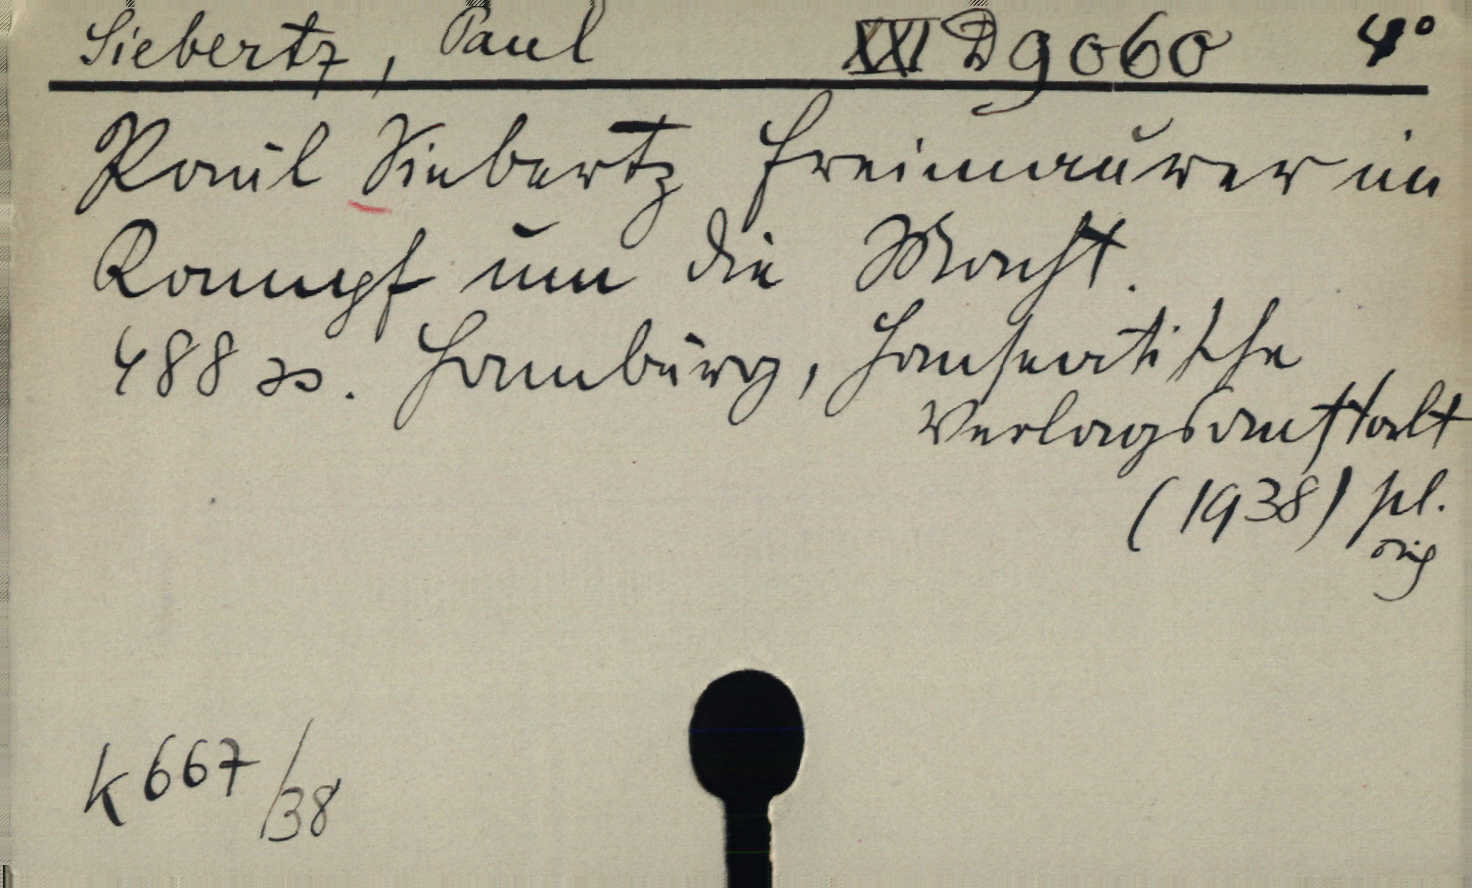 Siebertz, Paul XXI D 9060 4°
Paul Siebertz Freimaurer im
Kampf um die Macht.
488 ss. Hamburg, Hanseatische
Verlagsanstalt
(1938) pl.
orig
K 667/38